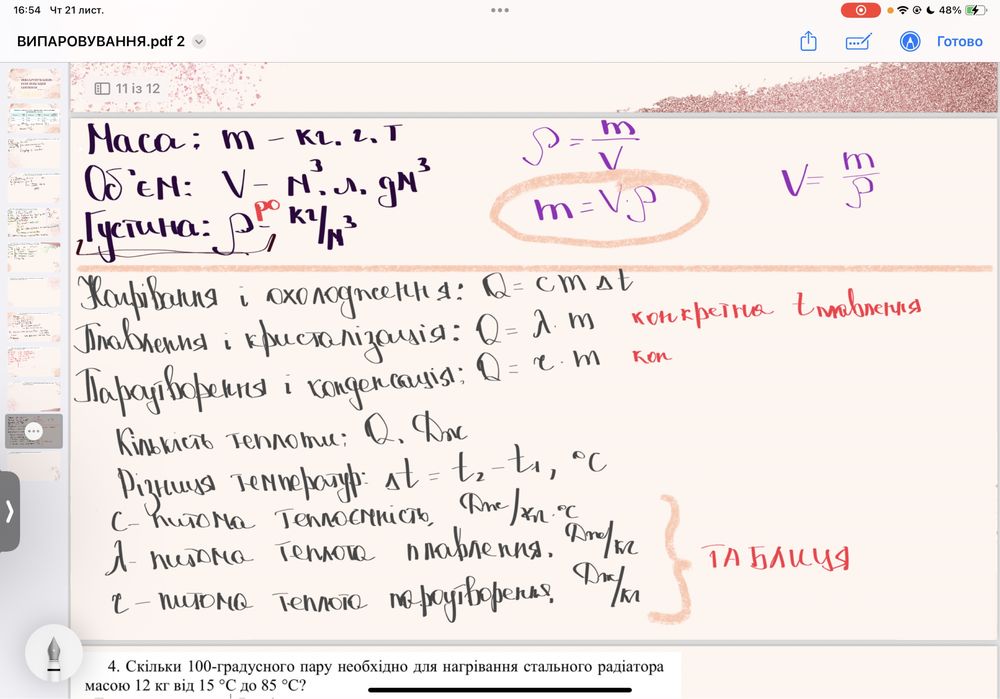 16:54 Чт 21 лист.
48%
ВИПАРОВУВАННЯ.pdf 2
Готово
11 із 12
Маса: m – кг. г. т
Об'єм: V – м³. л. дм³
Густина: ρ – ро кг/м³
ρ = m/V
m = V·ρ
V = m/ρ
Нагрівання і охолодження: Q = c m Δt
Плавлення і кристалізація: Q = λ·m конкретна t плавлення
Пароутворення і конденсація: Q = r·m кон
Кількість теплоти: Q, Дж
Різниця температур: Δt = t₂ – t₁, °C
c – питома теплоємність, Дж/кг·°C
λ – питома теплота плавлення. Дж/кг
r – питома теплота пароутворення, Дж/кг
ТАБЛИЦЯ
4. Скільки 100-градусного пару необхідно для нагрівання стального радіатора
масою 12 кг від 15 °С до 85 °С?